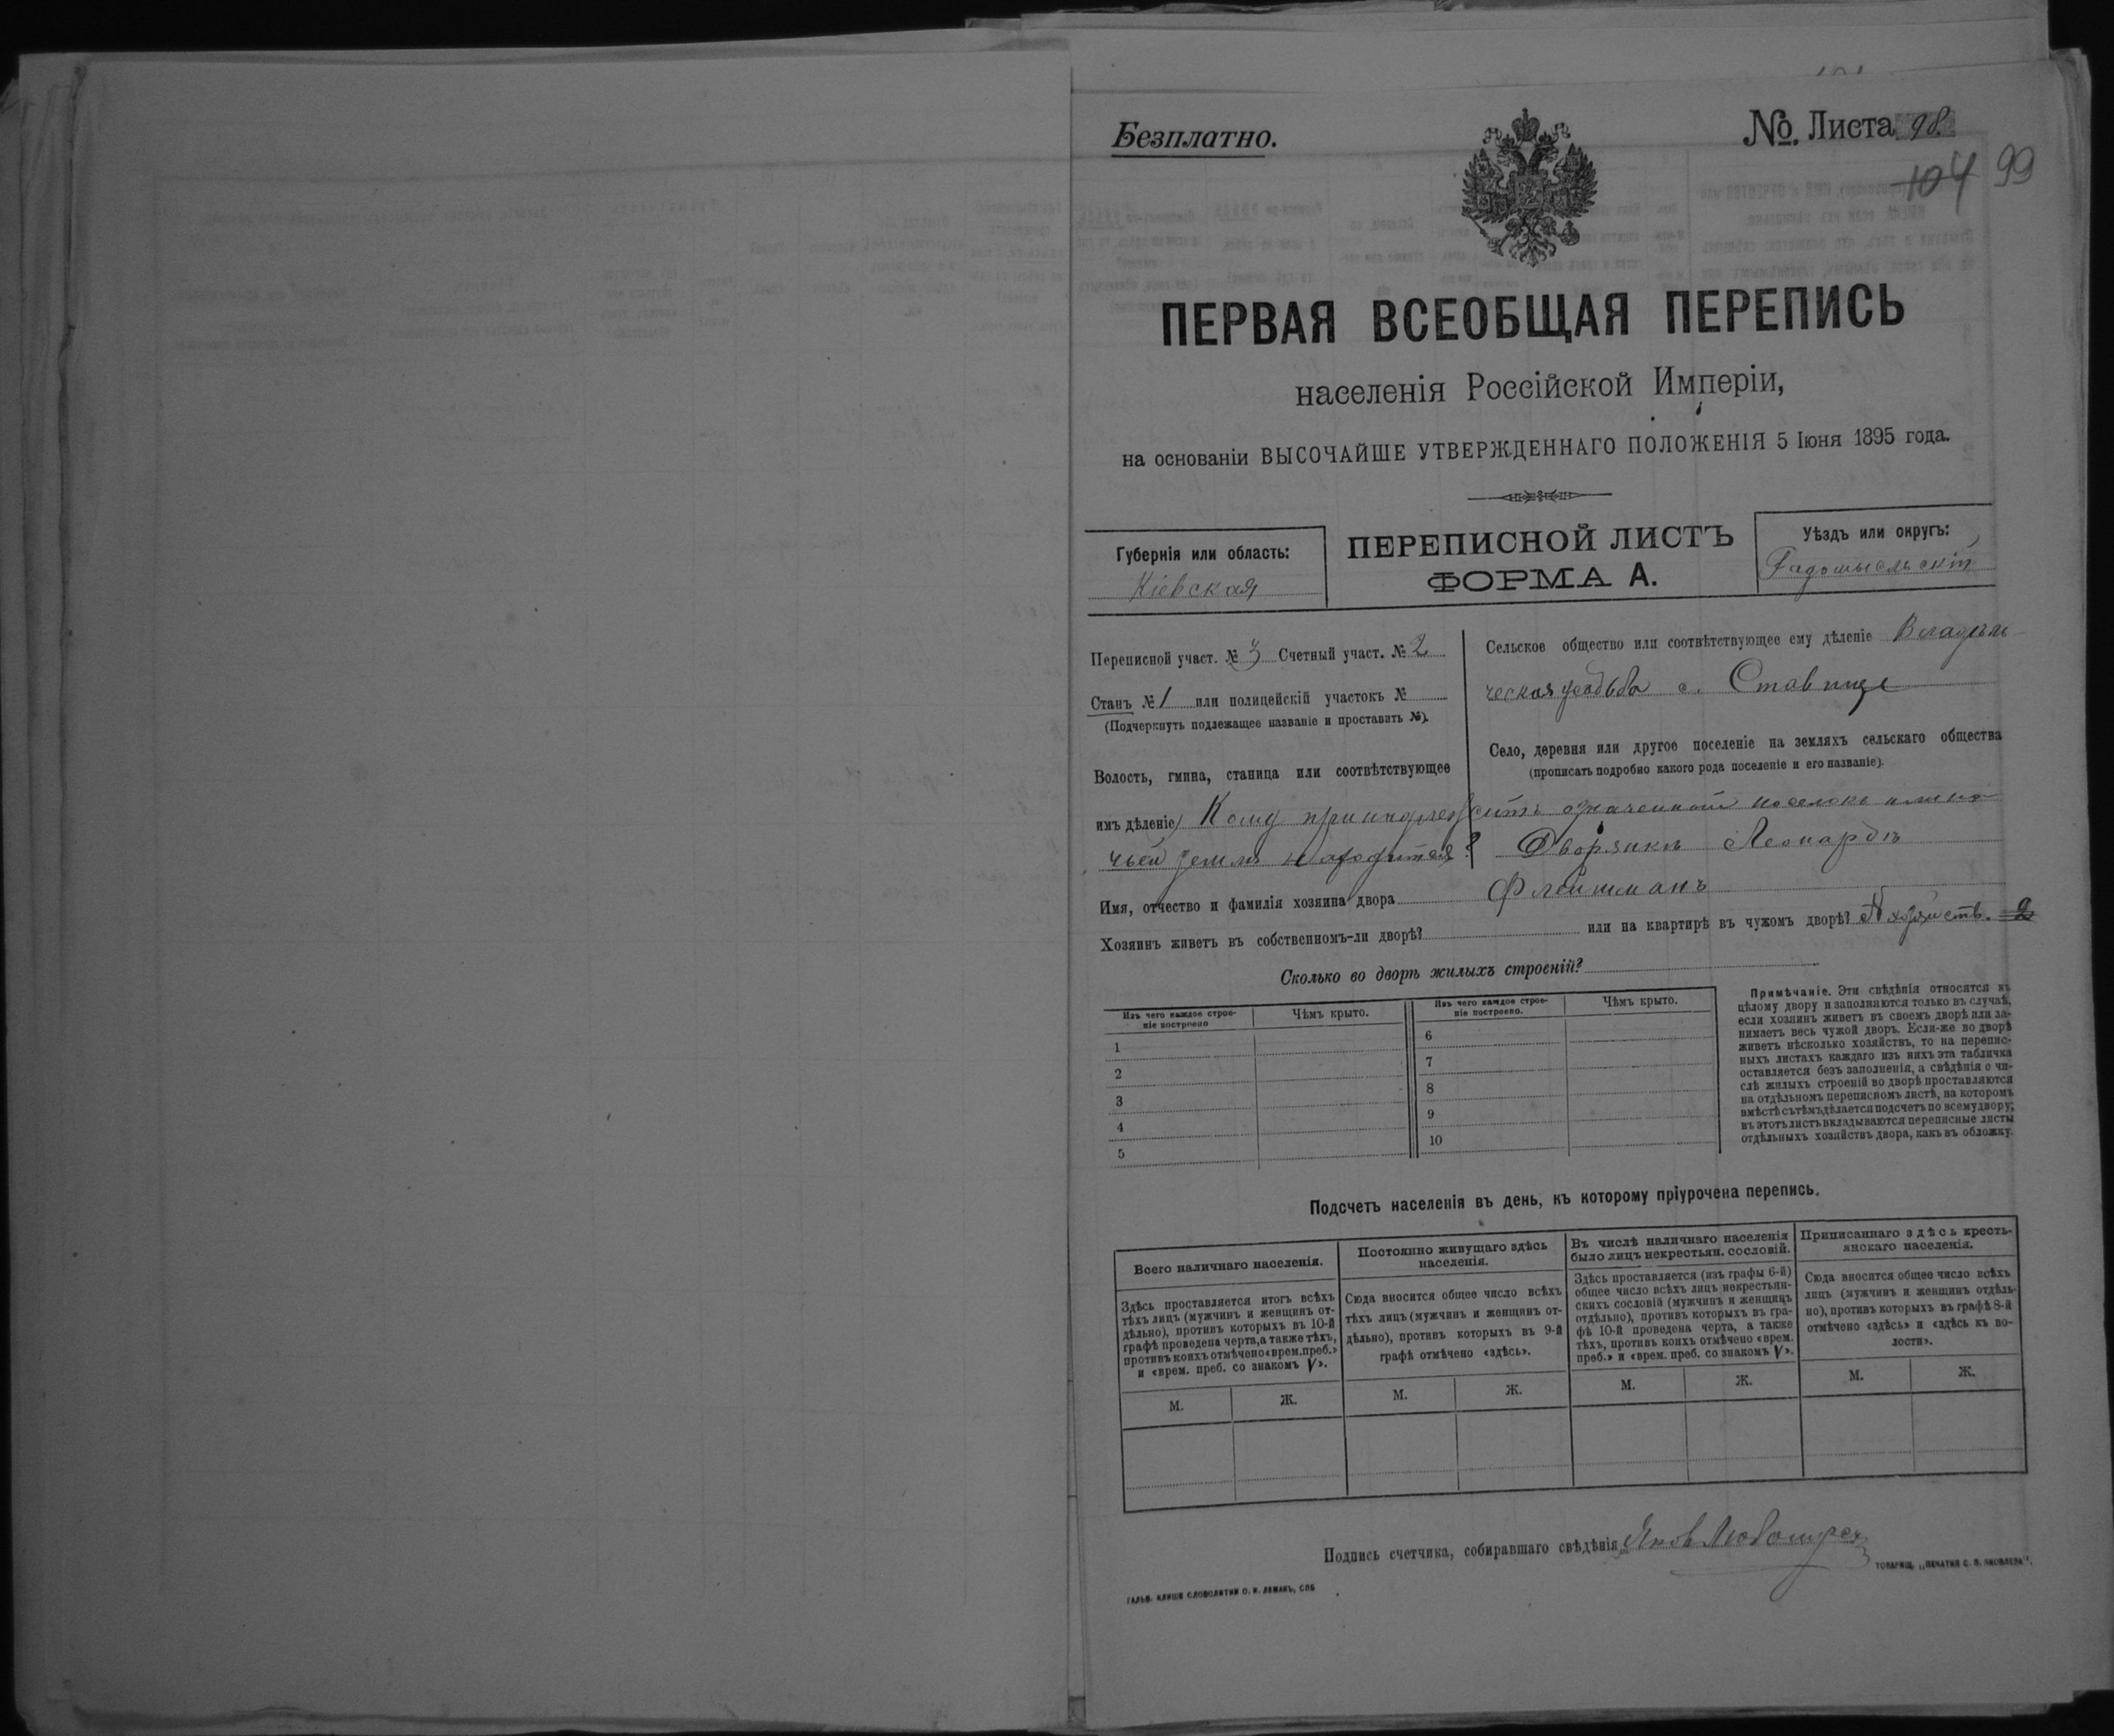 Безплатно.
№. Листа 98.
104 99
ПЕРВАЯ ВСЕОБЩАЯ ПЕРЕПИСЬ
населенія Россійской Имперіи,
на основаніи ВЫСОЧАЙШЕ УТВЕРЖДЕННАГО ПОЛОЖЕНІЯ 5 Іюня 1895 года.
Губернія или область:
Кіевская
ПЕРЕПИСНОЙ ЛИСТЪ
ФОРМА А.
Уѣздъ или округъ:
Радомысльскій
Переписной участ. № 3 Счетный участ. № 2
Станъ № 1 или полицейскій участокъ №
(Подчеркнуть подлежащее названіе и проставить №).
Сельское общество или соотвѣтствующее ему дѣленіе Владѣль-
ческая усадьба с. Ставище
Село, деревня или другое поселеніе на земляхъ сельскаго общества
(прописать подробно какого рода поселеніе и его названіе).
Волость, гмина, станица или соотвѣтствующее
имъ дѣленіе) Кому принадлежитъ означенный поселокъ или на
чьей землѣ находится? Дворянинъ Леонардъ
Имя, отчество и фамилія хозяина двора Флейшманъ
Хозяинъ живетъ въ собственномъ-ли дворѣ? или на квартирѣ въ чужомъ дворѣ? № хозяйств. 2
Сколько во дворѣ жилыхъ строеній?
Изъ чего каждое строе-
ніе построено
Чѣмъ крыто.
Изъ чего каждое строе-
ніе построено.
Чѣмъ крыто.
1
2
3
4
5
6
7
8
9
10
Примѣчаніе. Эти свѣдѣнія относятся къ
цѣлому двору и заполняются только въ случаѣ,
если хозяинъ живетъ въ своемъ дворѣ или за-
нимаетъ весь чужой дворъ. Если-же во дворѣ
живетъ нѣсколько хозяйствъ, то на перепис-
ныхъ листахъ каждаго изъ нихъ эта табличка
оставляется безъ заполненія, а свѣдѣнія о чи-
слѣ жилыхъ строеній во дворѣ проставляются
на отдѣльномъ переписномъ листѣ, на которомъ
вмѣстѣ съ тѣмъ дѣлается подсчетъ по всему двору;
въ этотъ листъ вкладываются переписные листы
отдѣльныхъ хозяйствъ двора, какъ въ обложку.
Подсчетъ населенія въ день, къ которому пріурочена перепись.
Всего наличнаго населенія.
Здѣсь проставляется итогъ всѣхъ
тѣхъ лицъ (мужчинъ и женщинъ от-
дѣльно), противъ которыхъ въ 10-й
графѣ проведена черта, а также тѣхъ,
противъ коихъ отмѣчено «врем. преб.»
и «врем. преб. со знакомъ V».
М. Ж.
Постоянно живущаго здѣсь
населенія.
Сюда вносится общее число всѣхъ
тѣхъ лицъ (мужчинъ и женщинъ от-
дѣльно), противъ которыхъ въ 9-й
графѣ отмѣчено «здѣсь».
М. Ж.
Въ числѣ наличнаго населенія
было лицъ некрестьян. сословій.
Здѣсь проставляется (изъ графы 6-й)
общее число всѣхъ лицъ некрестьян-
скихъ сословій (мужчинъ и женщинъ
отдѣльно), противъ которыхъ въ гра-
фѣ 10-й проведена черта, а также
тѣхъ, противъ коихъ отмѣчено «врем.
преб.» и «врем. преб. со знакомъ V».
М. Ж.
Приписаннаго здѣсь кресть-
янскаго населенія.
Сюда вносится общее число всѣхъ
лицъ (мужчинъ и женщинъ отдѣль-
но), противъ которыхъ въ графѣ 8-й
отмѣчено «здѣсь» и «здѣсь къ во-
лости».
М. Ж.
Подпись счетчика, собиравшаго свѣдѣнія
ТОВАРИЩ. „ПЕЧАТНЯ С. П. ЯКОВЛЕВА".
ГАЛЬВ. КЛИШЕ СЛОВОЛИТНИ О. И. ЛЕМАНЪ, СПБ